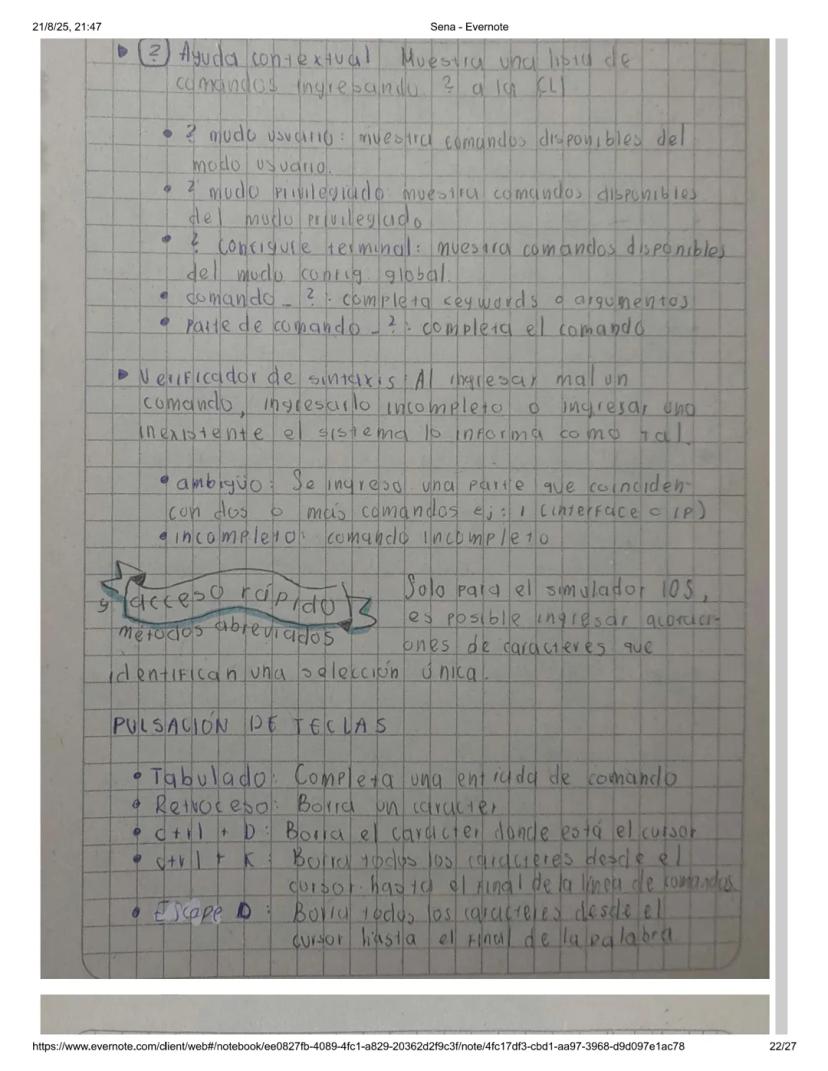 21/8/25, 21:47
Sena - Evernote
? Ayuda contextual Muestra una lista de
comandos ingresando ? a la CLI
• ? modo usuario: muestra comandos disponibles del
modo usuario.
• ? modo privilegiado muestra comandos disponibles
del modo privilegiado
• ? configure terminal: muestra comandos disponibles
del modo config global.
• comando _ ? : completa keywords o argumentos
• Parte de comando _ ? : completa el comando
Verificador de sintaxis: Al ingresar mal un
comando, ingresarlo incompleto o ingresar uno
inexistente el sistema lo informa como tal.
• ambigüo: Se ingreso una parte que coinciden
con dos o más comandos ej: i (interface o IP)
• incompleto: comando incompleto
acceso rápido
y métodos abreviados
Solo para el simulador IOS,
es posible ingresar
ones de caracteres que
identifican una selección única.
PULSACIÓN DE TECLAS
• Tabulado: Completa una entrada de comando
• Retroceso: Borra un caracter
• ctrl + D: Borra el carácter donde está el cursor
• ctrl + K: Borra todos los caracteres desde el
cursor hasta el final de la línea de comandos
• Escape D: Borra todos los caracteres desde el
cursor hasta el final de la palabra
https://www.evernote.com/client/web#/notebook/ee0827fb-4089-4fc1-a829-20362d2f9c3f/note/4fc17df3-cbd1-aa97-3968-d9d097e1ac78
22/27